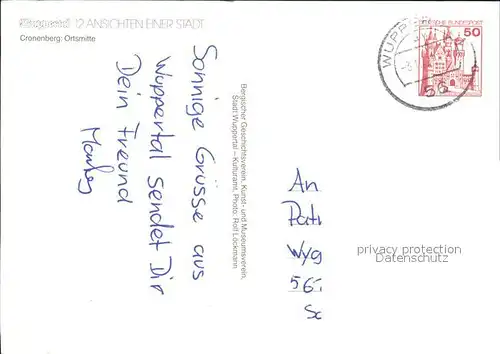 Wuppertal 12 ANSICHTEN EINER STADT
Cronenberg: Ortsmitte
Sonnige Grüsse aus
Wuppertal sendet Dir
Dein Freund
Bergischer Geschichtsverein, Kunst- und Museumsverein,
Stadt Wuppertal – Kulturamt, Photo: Rolf Löckmann
WUPP
56
DEUTSCHE BUNDESPOST
50
An
Pat
Wyg
56
Sc
privacy protection
Datenschutz